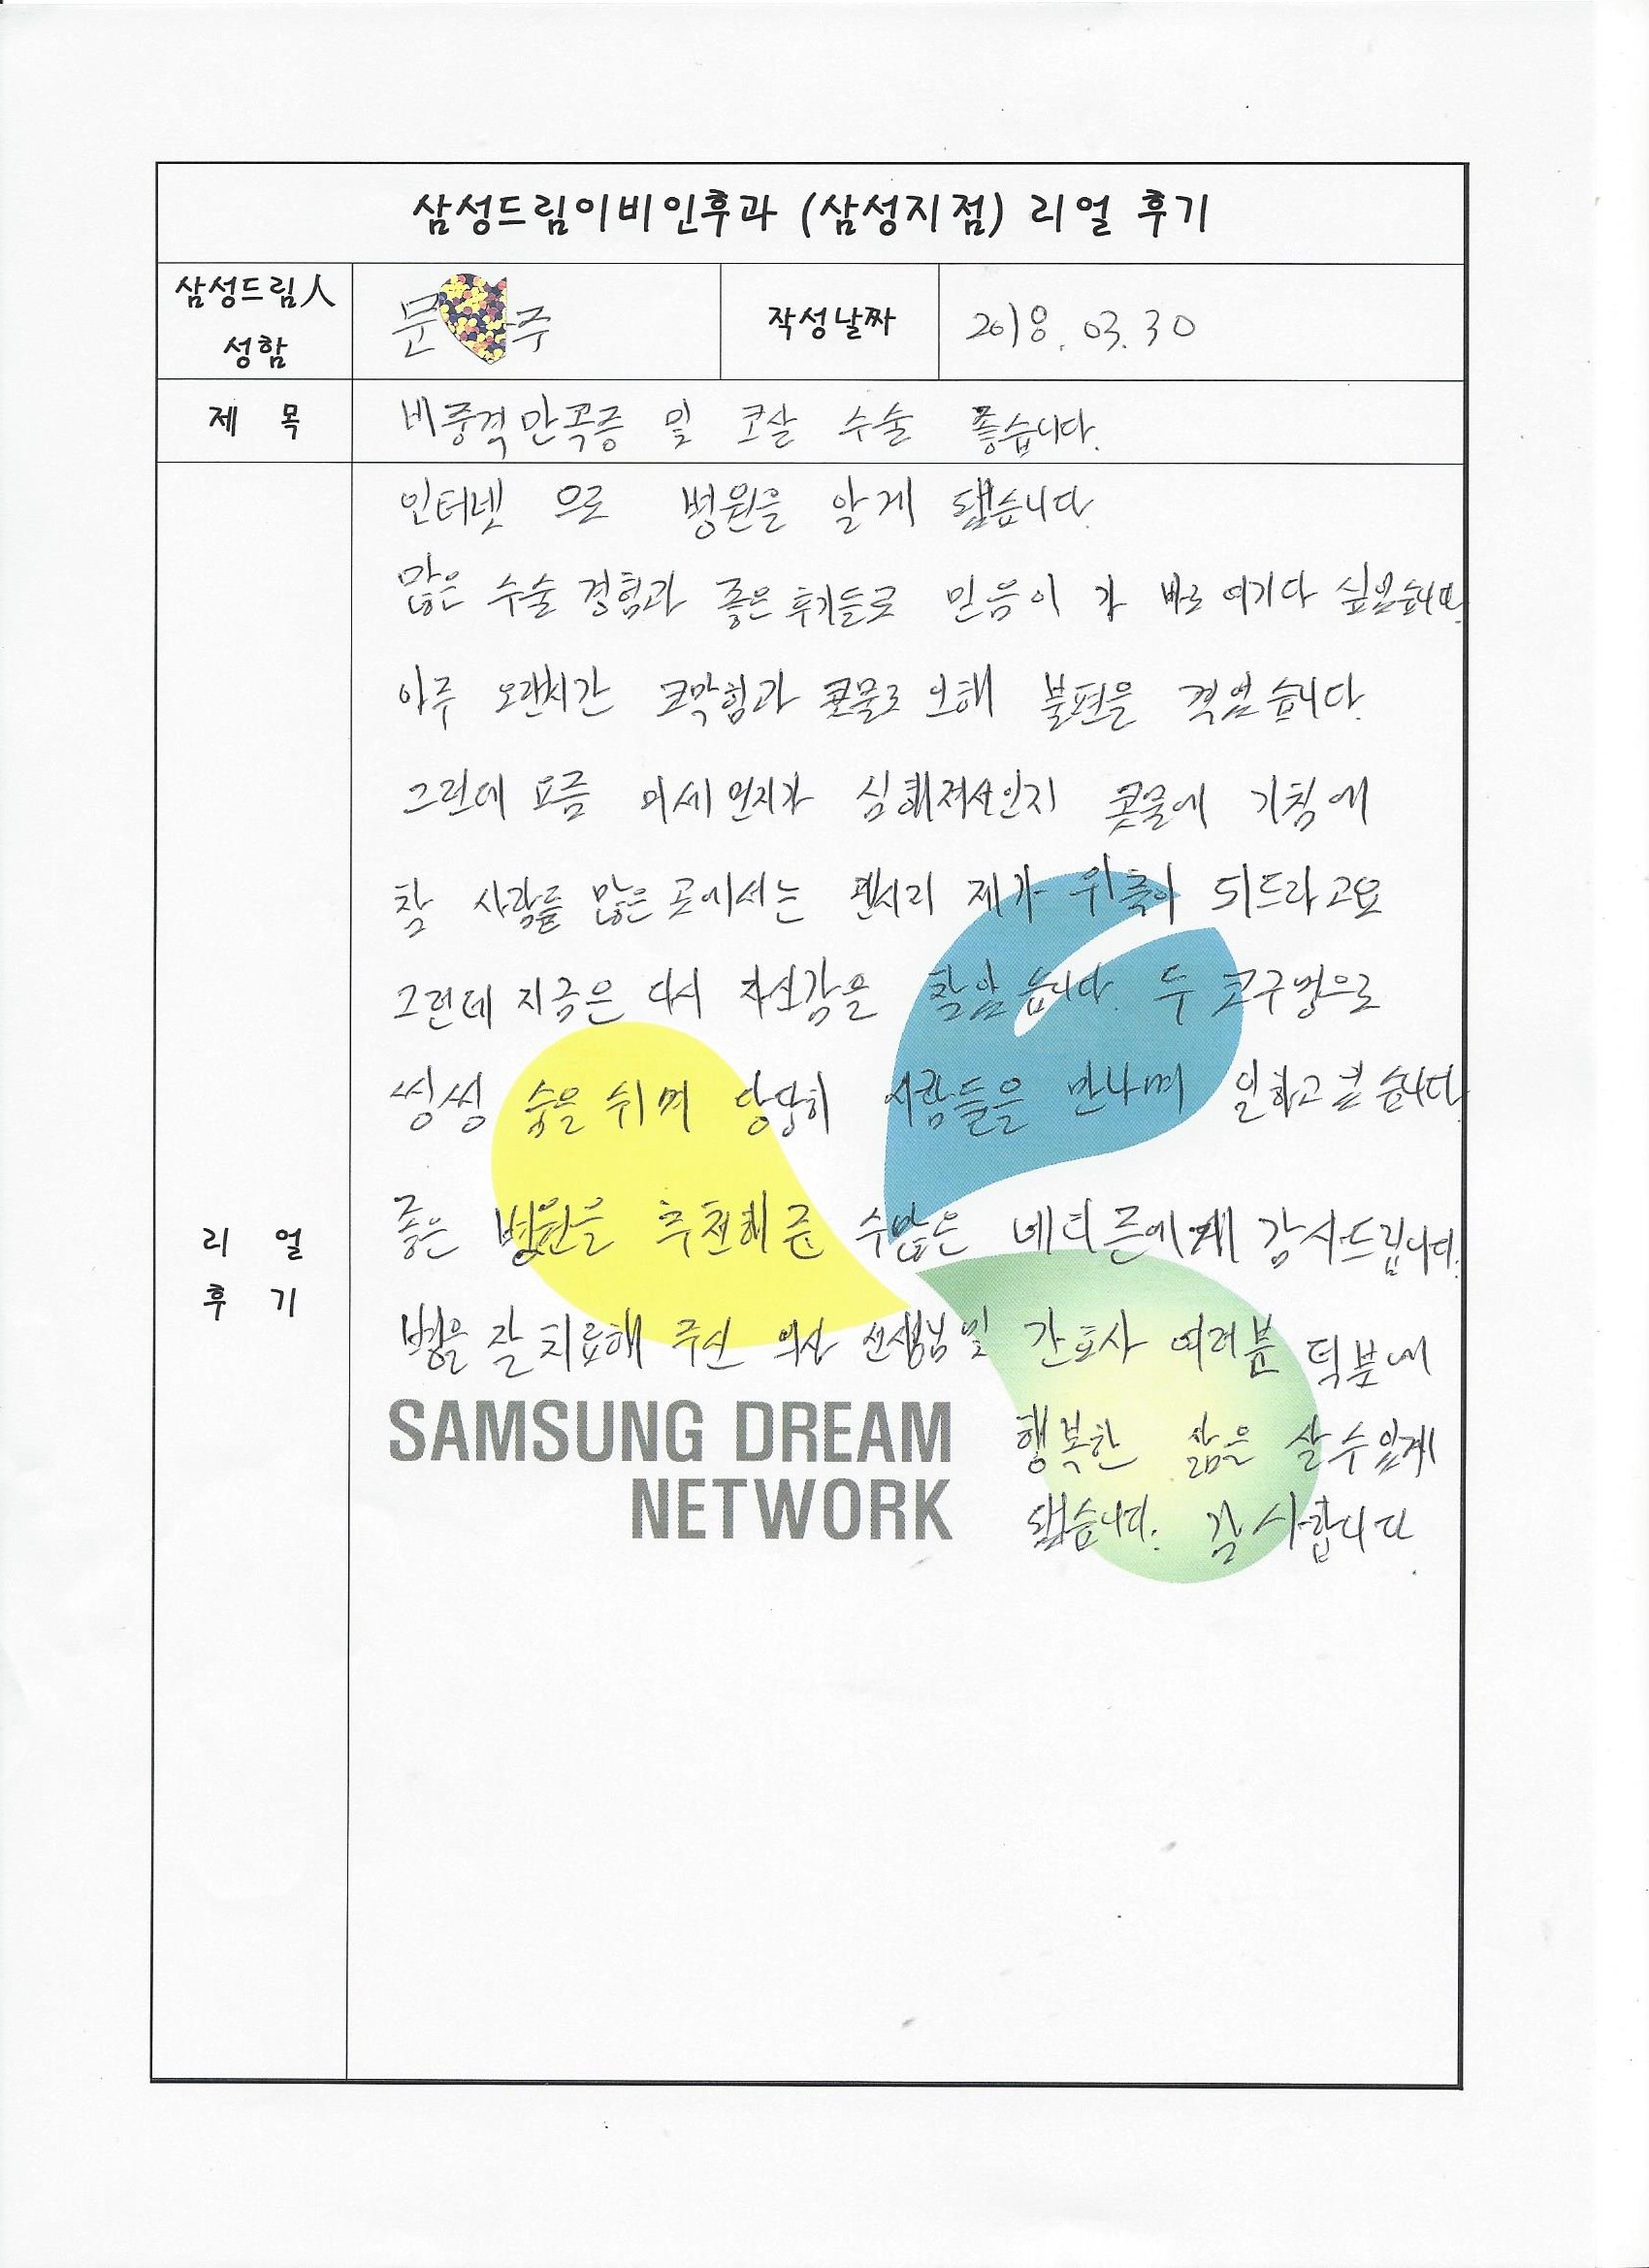 삼성드림이비인후과 (삼성지점) 리얼 후기
삼성드림人 성함
문 주
작성날짜
2018. 03. 30
제 목
비중격만곡증 및 코살 수술 좋습니다.
리 얼 후 기
인터넷 으로 병원을 알게 됐습니다.
많은 수술 경험과 좋은 후기들로 믿음이 가 바로 여기다 싶었습니다.
아주 오랜시간 코막힘과 콧물로 인해 불편을 겪었습니다.
그런데 요즘 미세먼지가 심해져서인지 콧물에 기침에
참 사람들 많은 곳에서는 괜시리 제가 위축이 되드라고요
그런데 지금은 다시 자신감을 찾았습니다. 두 코구멍으로
씽씽 숨을 쉬며 당당히 사람들을 만나며 일하고 습니다
좋은 병원을 추천해 준 수많은 네티즌에게 감사드립니다.
병을 잘 치료해 주신 의사 선생님 및 간호사 여러분 덕분에
행복한 삶을 살 수 있게
됐습니다. 감사합니다.
SAMSUNG DREAM
NETWORK